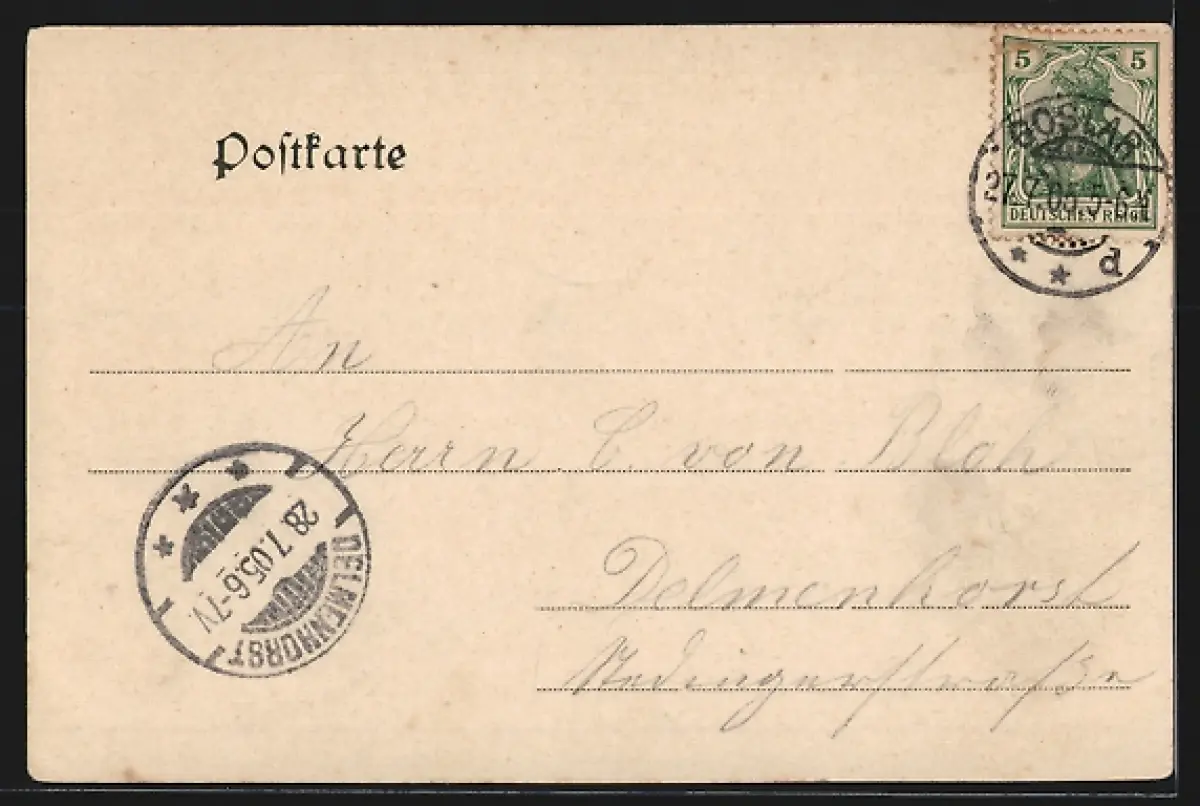 5 5
DEUTSCHES REICH
GOSLAR
27.7.05.5-6N
d
Poſtkarte
An
Herrn C. von Bloh
Delmenhorst
Stedingerſtraße
DELMENHORST 1
28.7.05.6-7N.